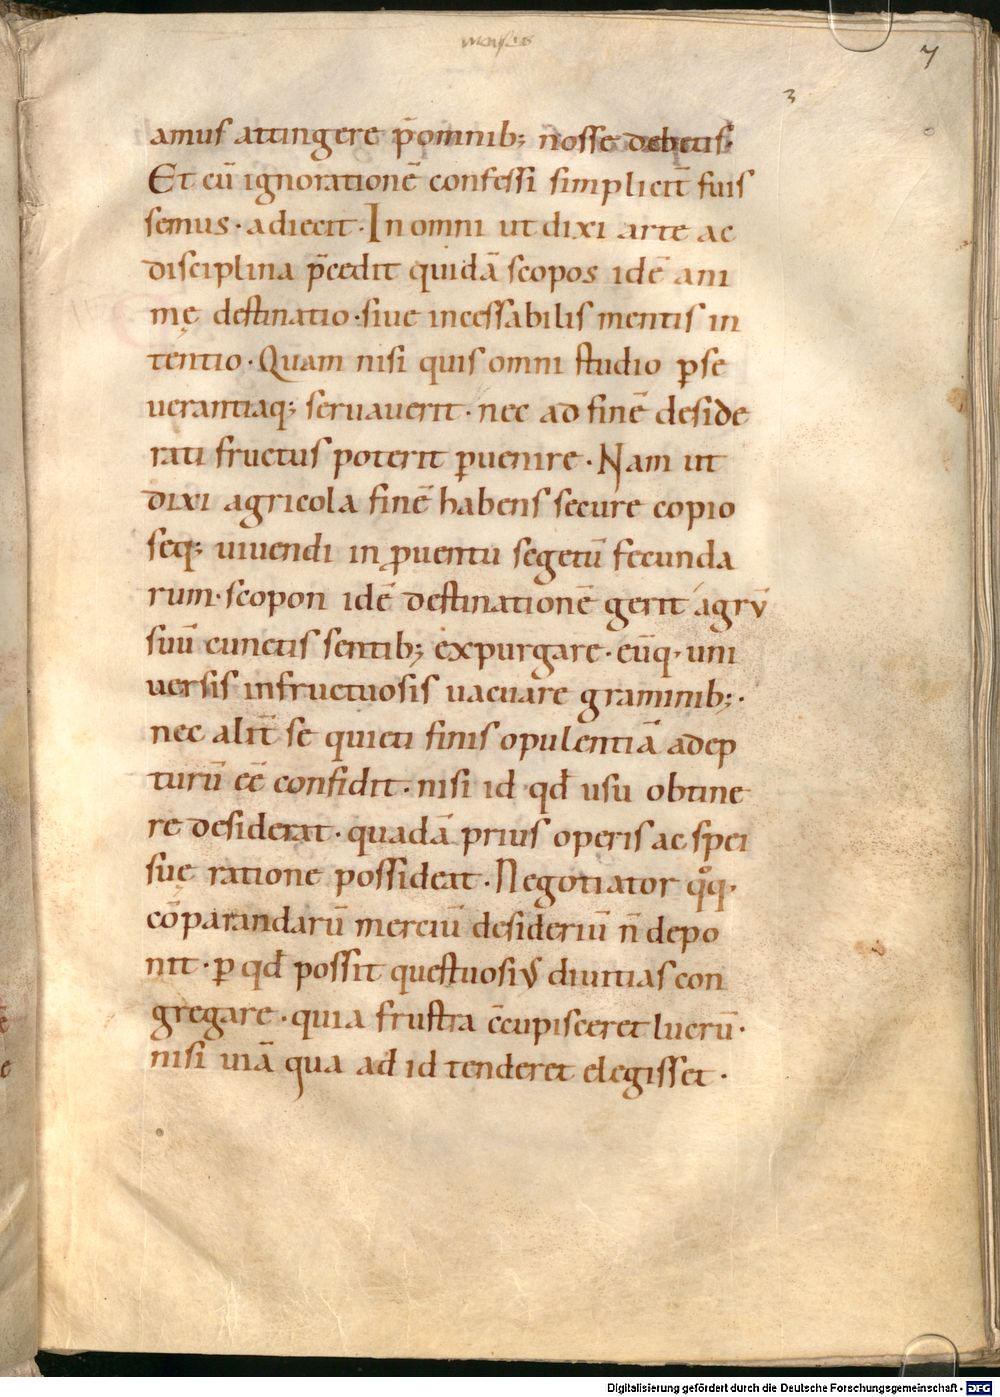 7
3
amus attingere p̄ omnib; nosse debetis.
Et cū ignorationē confessi simplicit̄ fuis
semus · adiecit · In omni ut dixi arte ac
disciplina p̄cedit quidā scopos idē ani
mę destinatio · siue incessabilis mentis in
tentio · Quam nisi quis omni studio ꝑse
uerantiaq; seruauerit · nec ad finē deside
rati fructus poterit ꝑuenire · Nam ut
dixi agricola finē habens secure copio
seq; uiuendi in ꝓuentu segetū fecunda
rum · scopon idē destinationē gerit agrū
suū cunctis sentib; expurgare · eūq· uni
uersis infructuosis uacuare graminib; ·
nec alit̄ se quieti finis opulentiā adep
turū eē confidit · nisi id qđ usu obtine
re desiderat · quadā prius operis ac spei
suę ratione possideat · Negotiator qͦq·
cōparandarū merciū desideriū n̄ depo
nit · ꝑ qđ possit questuosiꝰ diuitias con
gregare · quia frustra c̄cupisceret lucrū ·
nisi uiā qua ad id tenderet elegisset ·
Digitalisierung gefördert durch die Deutsche Forschungsgemeinschaft - DFG